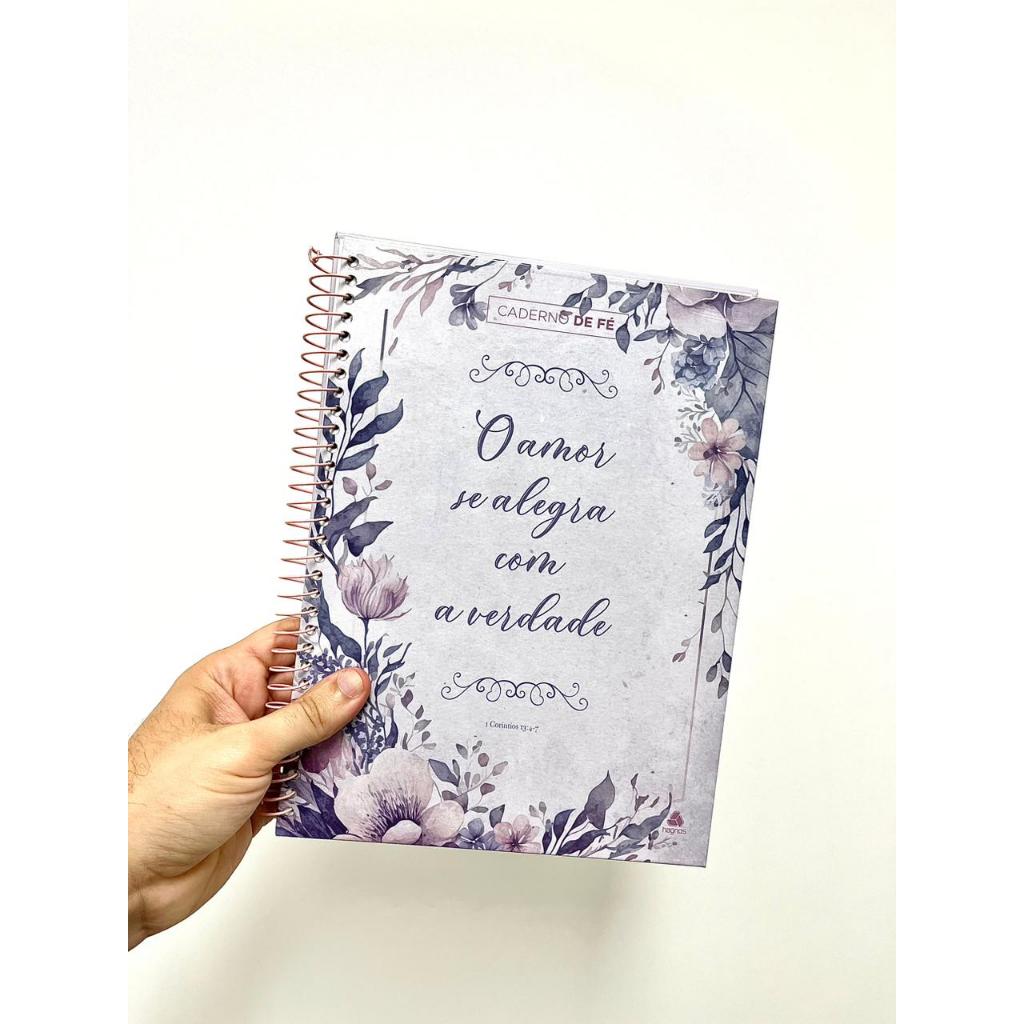 CADERNO DE FÉ
O amor
se alegra
com
a verdade
1 Coríntios 13:4-7
hagnos